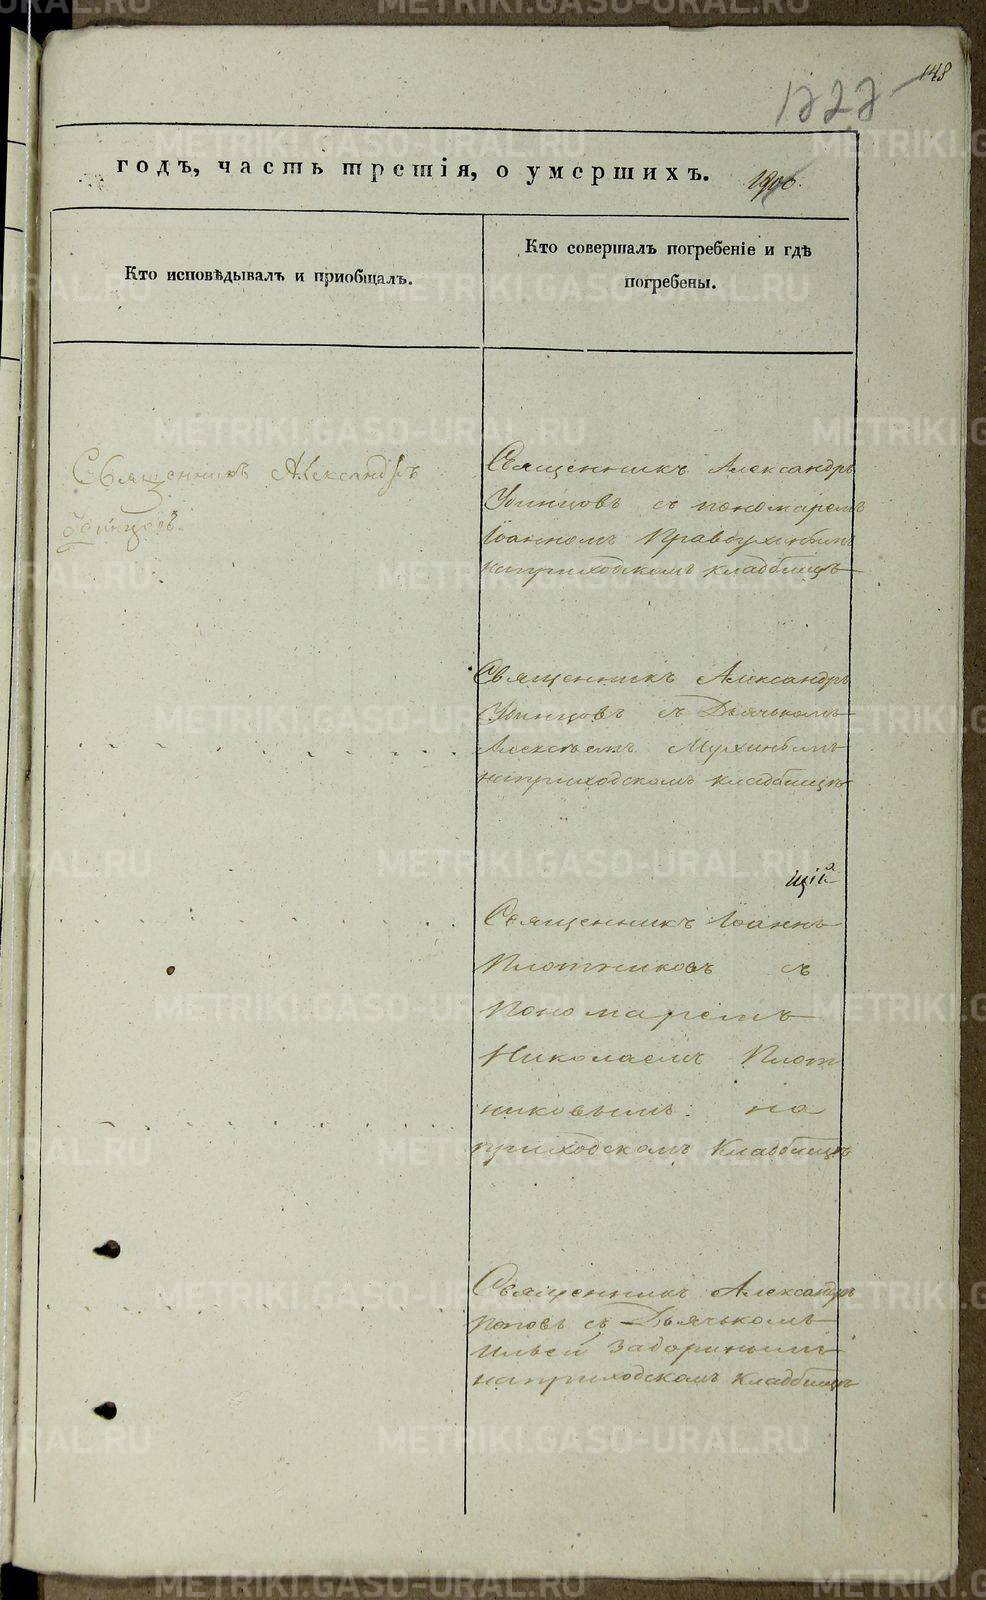 148
годъ, часть третія, о умершихъ.
Кто исповѣдывалъ и приобщалъ.
Кто совершалъ погребеніе и гдѣ
погребены.
Священникъ Александръ
Удинцовъ.
Священникъ Александръ
Удинцовъ съ пономаремъ
Іоанномъ
на приходскомъ кладбищѣ
Священникъ Александръ
Удинцовъ съ Дьячькомъ
Алексѣемъ Мухинымъ
на приходскомъ кладбищѣ
щій
Священникъ Іоаннъ
Плотниковъ съ
Пономаремъ
Николаемъ Плот
никовымъ на
приходскомъ кладбищѣ
Священникъ Александръ
Поповъ съ Дьячькомъ
Ильей Задоринымъ
на приходскомъ кладбищѣ
METRIKI.GASO-URAL.RU